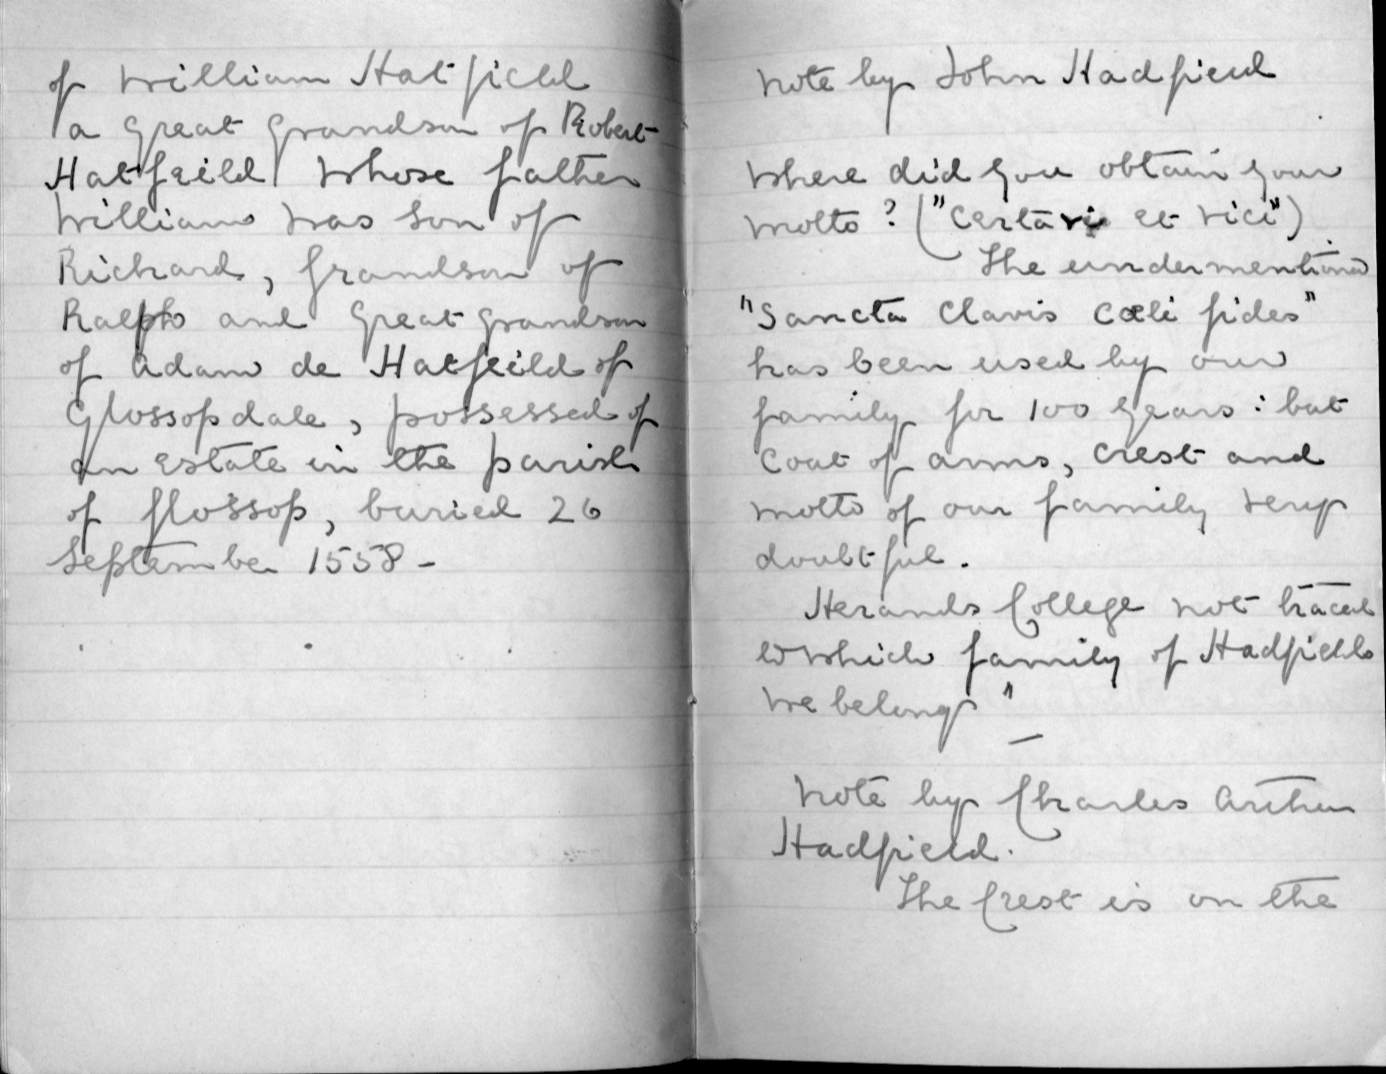 of William Hatfield
a great grandson of Robert
Hatfeild whose father
William was son of
Richard, Grandson of
Ralph and Great grandson
of Adam de Hatfeild of
Glossopdale, possessed of
an Estate in the parish
of Glossop, buried 26
September 1558 -
Note by John Hadfield
Where did you obtain your
motto? ("Certavi et vici")
The undermentioned
"Sancta Clavis Cœli fides"
has been used by our
family for 100 years: but
Coat of arms, crest and
motto of our family very
doubtful.
Heralds College not traced
to which family of Hadfields
we belong"
Note by Charles Arthur
Hadfield.
The Crest is on the